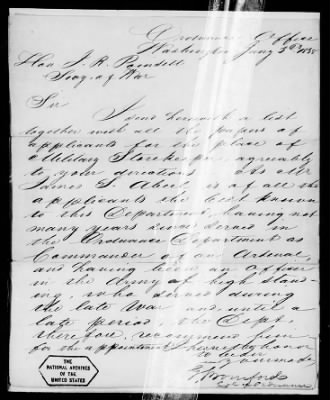 Ordnance Office
Washington Jany 3rd 1835
Hon. J. R. Poinsett
Secy. of War
Sir
I send herewith a list
together with all the papers of
applicants for the place of
Military Storekeeper, agreeably
to your directions. As Mr
James S. Abeel, is of all the
applicants the best known
to this Department, having not
many years since served in
the Ordnance Department as
Commander of an Arsenal,
and having been an Officer
in the Army of high stand-
ing, who served during
the late War and until a
late period, the Dept.
therefore, recommend him
for the appointment. I have the honor
to be Sir
G. Bomford
Col of Ordnance
THE
NATIONAL ARCHIVES
OF THE
UNITED STATES